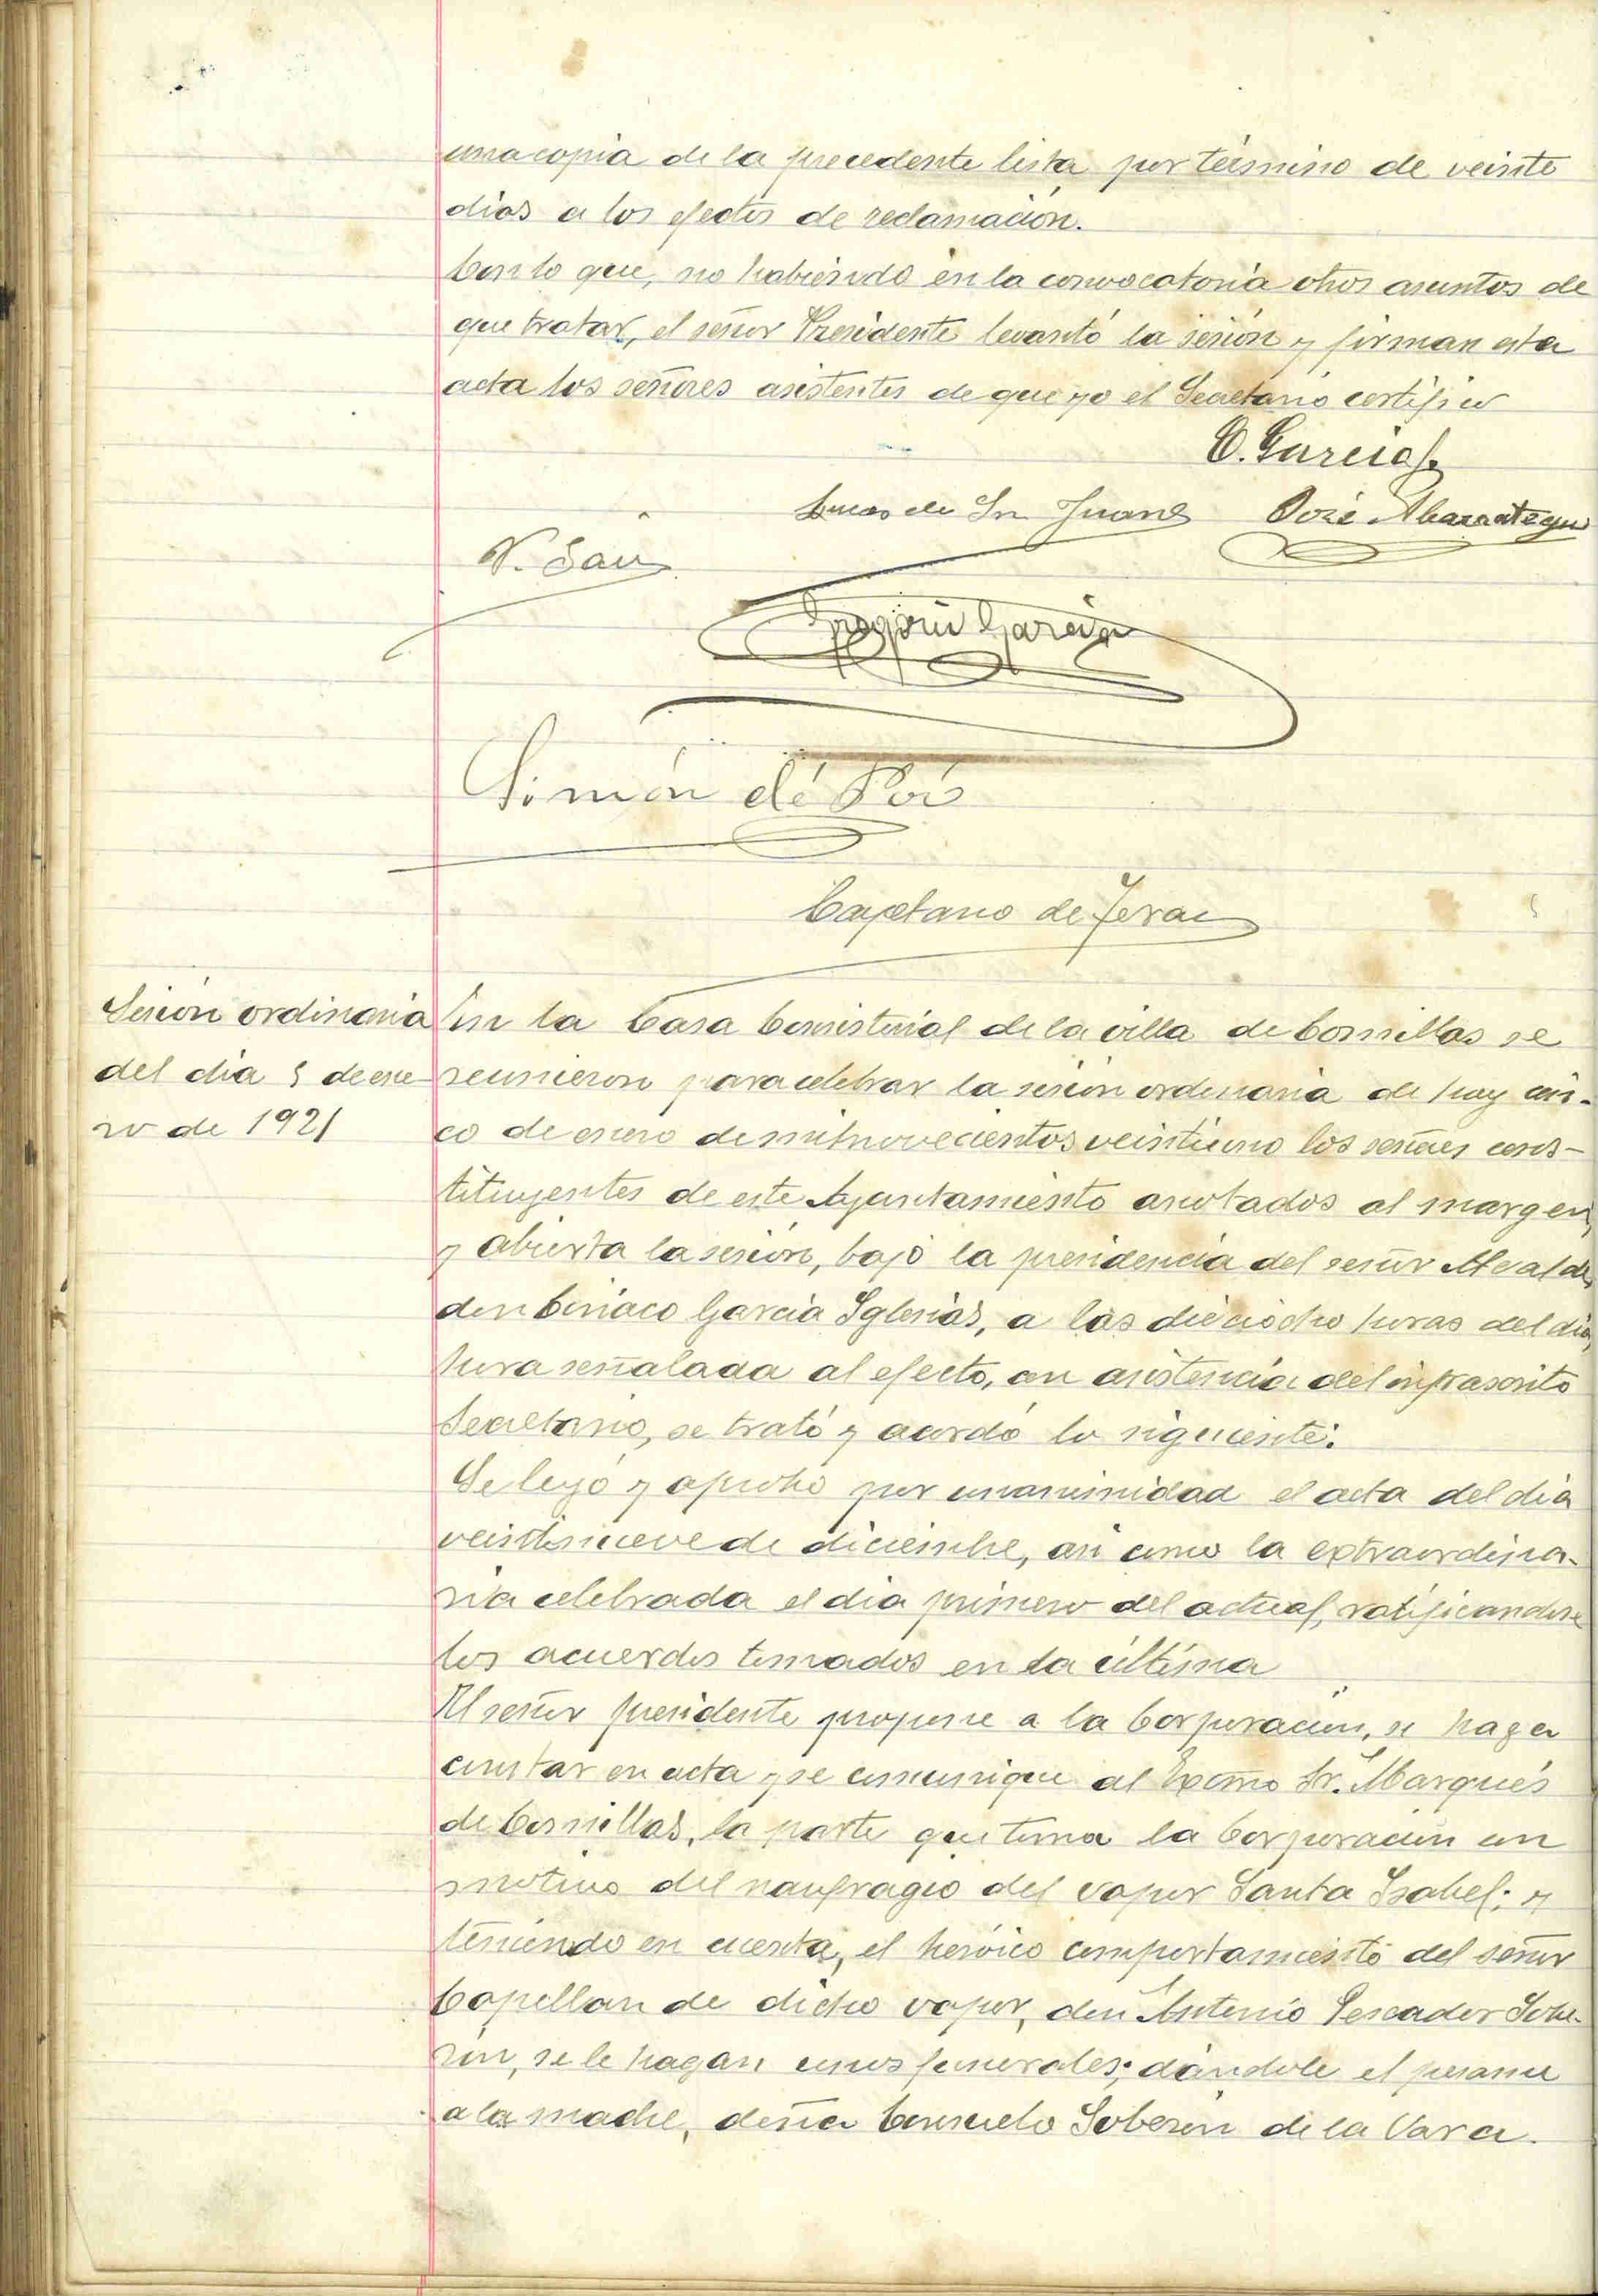 una copia de la precedente lista por término de veinte
dias a los efectos de reclamación.
Con lo que, no habiendo en la convocatoria otros asuntos de
que tratar, el señor Presidente levantó la sesión y firman esta
acta los señores asistentes de que yo el Secretario certifico
C. García
Lucas de Sn Juan José Abarrategui
V. Sau
Gregorio García
Simón de Poó
Cayetano de Teran
Sesión ordinaria
del dia 5 de ene-
ro de 1921
En la Casa Consistorial de la villa de Comillas se
reunieron para celebrar la sesión ordinaria de hoy cin-
co de enero de mil novecientos veintiuno los señores cons-
tituyentes de este Ayuntamiento anotados al margen,
y abierta la sesión, bajo la presidencia del señor Alcalde,
don Ciriaco García Iglesias, a las dieciocho horas del dia,
hora señalada al efecto, con asistencia del infrascrito
Secretario, se trató y acordó lo siguiente:
Se leyó y aprobó por unanimidad el acta del dia
veintinueve de diciembre, asi como la extraordina-
ria celebrada el dia primero del actual, ratificandose
los acuerdos tomados en la última
El señor presidente propone a la Corporación, se haga
constar en acta y se comunique al Excmo Sr. Marqués
de Comillas, la parte que toma la Corporación con
motivo del naufragio del vapor Santa Isabel; y
teniendo en cuenta, el heróico comportamiento del señor
Capellan de dicho vapor, don Antonio Pescador Sobe-
rón, se le hagan unos funerales; dándole el pesame
a la madre, doña Consuelo Soberón de la Vara.